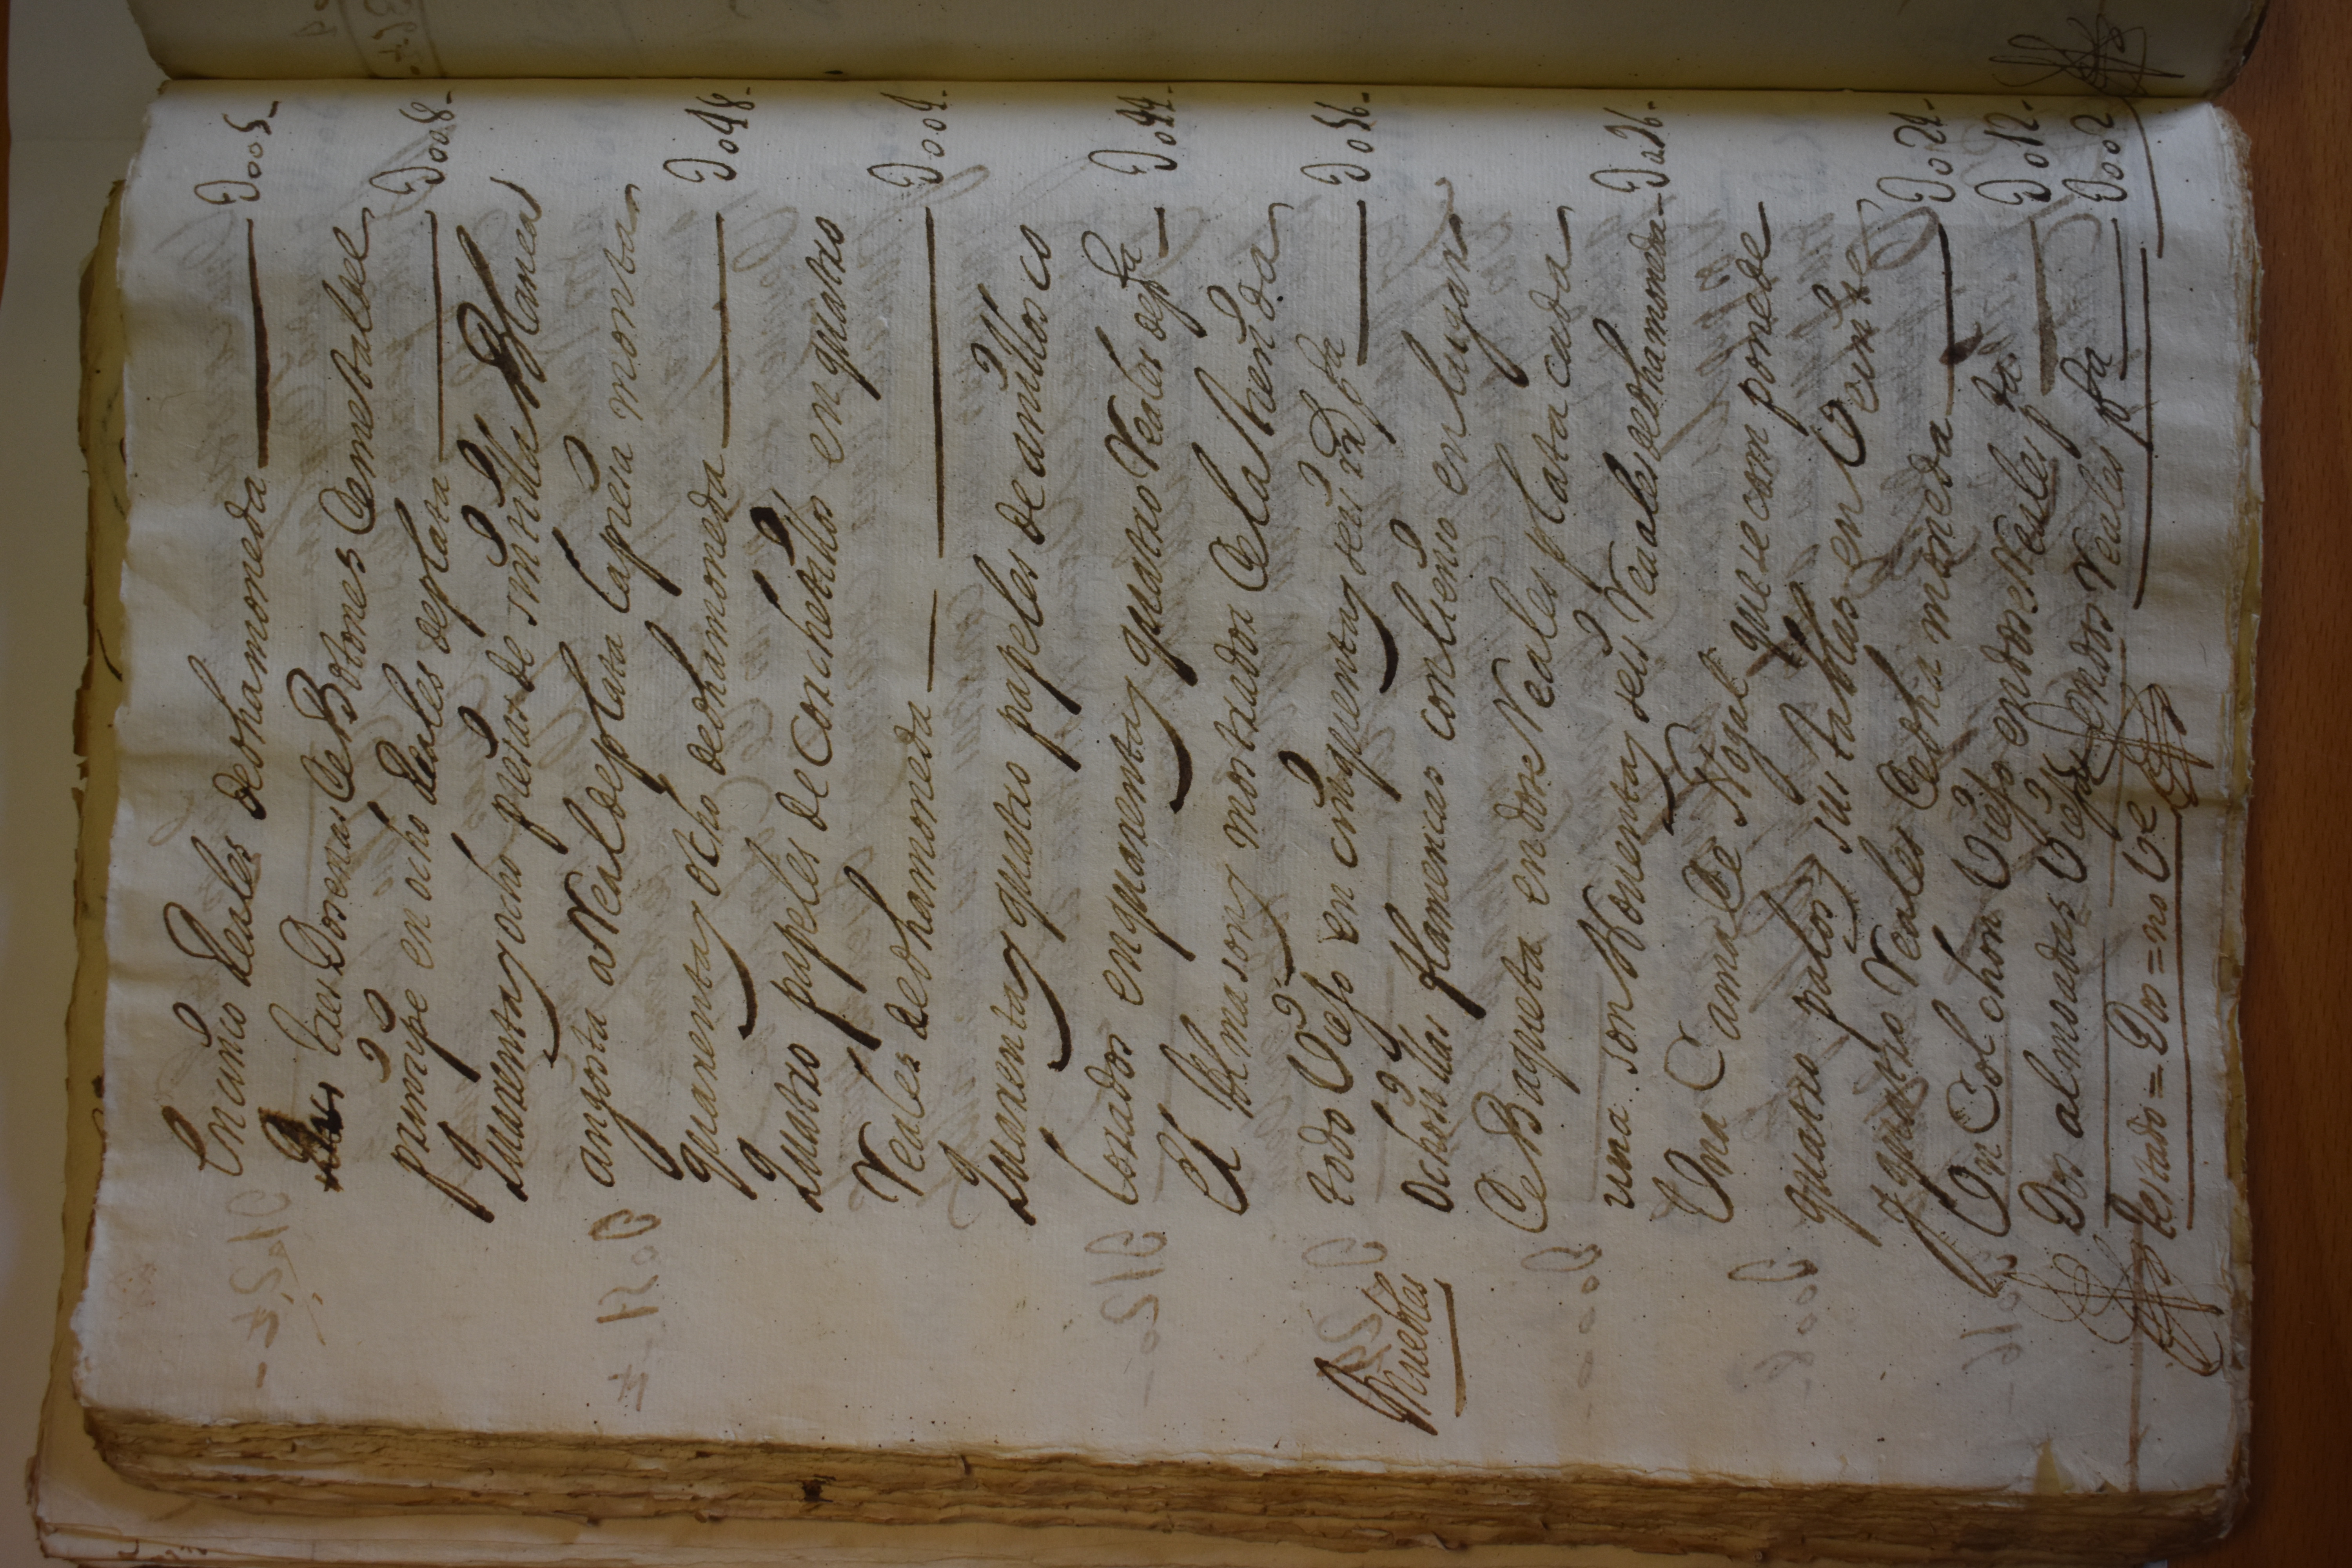 En cinco Reales de dha moneda — D005-
tres Dosenas de Botones de metal del
príncipe en ocho Reales de plata — D008-
Quarenta y ocho piesas de sintilla blanca
angosta a Real de plata la piesa monta
quarenta y ocho de dha moneda — D048-
Quatro papeles de corchetillos en quatro
Reales de dha moneda — D004-
Quarenta y quatro papeles de anillos co
lorados en quarenta y quatro Reales de pta — D044-
El Almason y mostrador de la tienda
todo Viejo en cinquenta y seis rs pta — D056-
Muebles
Ocho sillas flamencas con lienso en lugar
de Baqueta en dose Reales plata cada
una son Noventa y seis Reales de dha moneda — D096-
Una Cama de Nogal que se compone de
quatro palos y sus tablas en Veinte
y quatro Reales de dha moneda — D024-
Un Colchon Viejo en dose Reales pta — D012-
Dos almoadas Viejas en dos Reales pta — D002
testado = Dos = no Ve